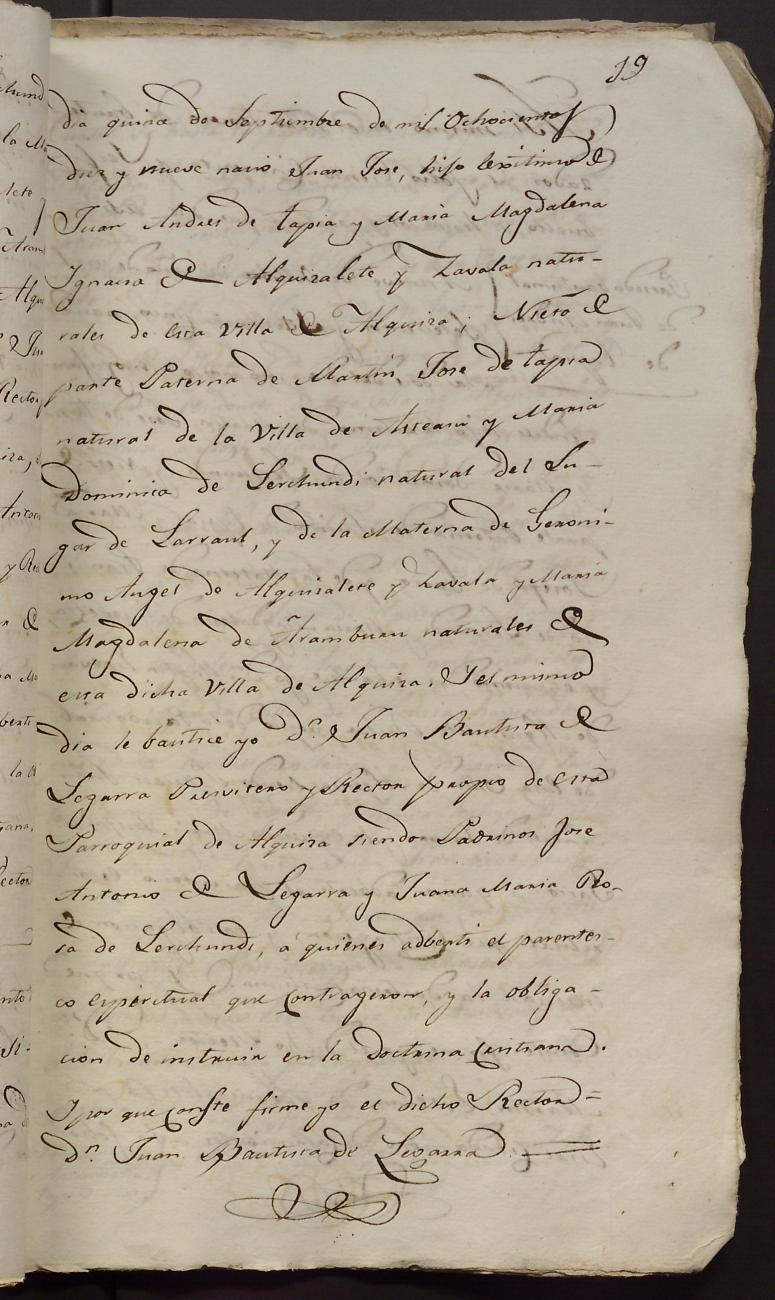 19
dia quince de Septiembre de mil Ochocientos
diez y nueve nació Juan Jose, hijo lexitimo de
Juan Andres de tapia y Maria Magdalena
Ignacia de Alquizalete y Zavala natu-
rales de esta Villa de Alquiza; Nieto de
parte Paterna de Martin Jose de tapia
natural de la Villa de Asteasu y Maria
Dominica de Lerchundi natural del Lu-
gar de Larraul, y de la Materna de Geroni-
mo Angel de Alquizalete y Zavala y Maria
Magdalena de Aramburu naturales de
esta dicha Villa de Alquiza. Y el mismo
dia le bautice yo Dn. Juan Bautista de
Legarra Presvitero y Rector propio de esta
Parroquial de Alquiza siendo Padrinos Jose
Antonio de Legarra y Juana Maria Ro-
sa de Lerchundi, a quienes adberti el parentes-
co espiritual que contrageron, y la obliga-
cion de instruir en la Doctrina Cristiana.
Y por que conste firme yo el dicho Rector =
Dn. Juan Bautista de Legarra